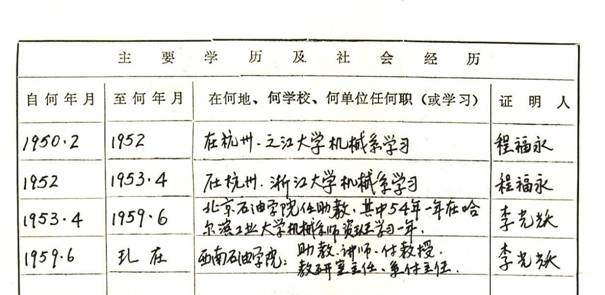 主要学历及社会经历
自何年月 至何年月 在何地、何学校、何单位任何职（或学习） 证明人
1950.2 1952 在杭州.之江大学机械系学习 程福永
1952 1953.4 在杭州.浙江大学机械系学习 程福永
1953.4 1959.6 北京石油学院任助教,其中54年一年在哈
尔滨工业大学机械系师资班学习一年. 李光跃
1959.6 现在 西南石油学院: 助教.讲师.付教授.
教研室主任.系付主任. 李光跃